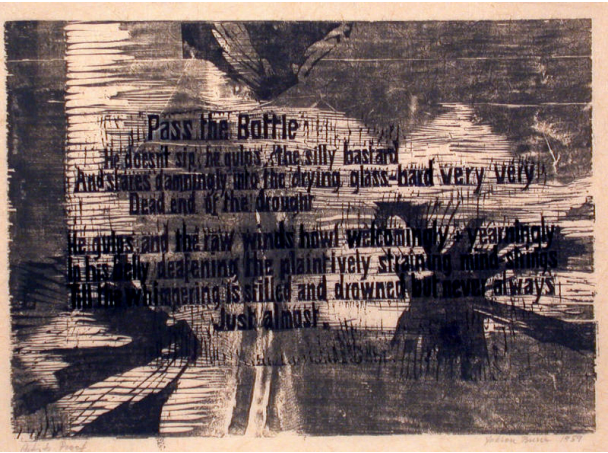 Pass the Bottle
He doesn't sip, he gulps, the silly bastard
And stares dampingly into the drying glass-bard very very
Dead end of the drought
He gulps and the raw winds howl welcomingly yearningly
In his belly deafening the plaintively straining mind-strings
Till the whimpering is stilled and drowned but never always
Just almost.
Artist's Proof
1959